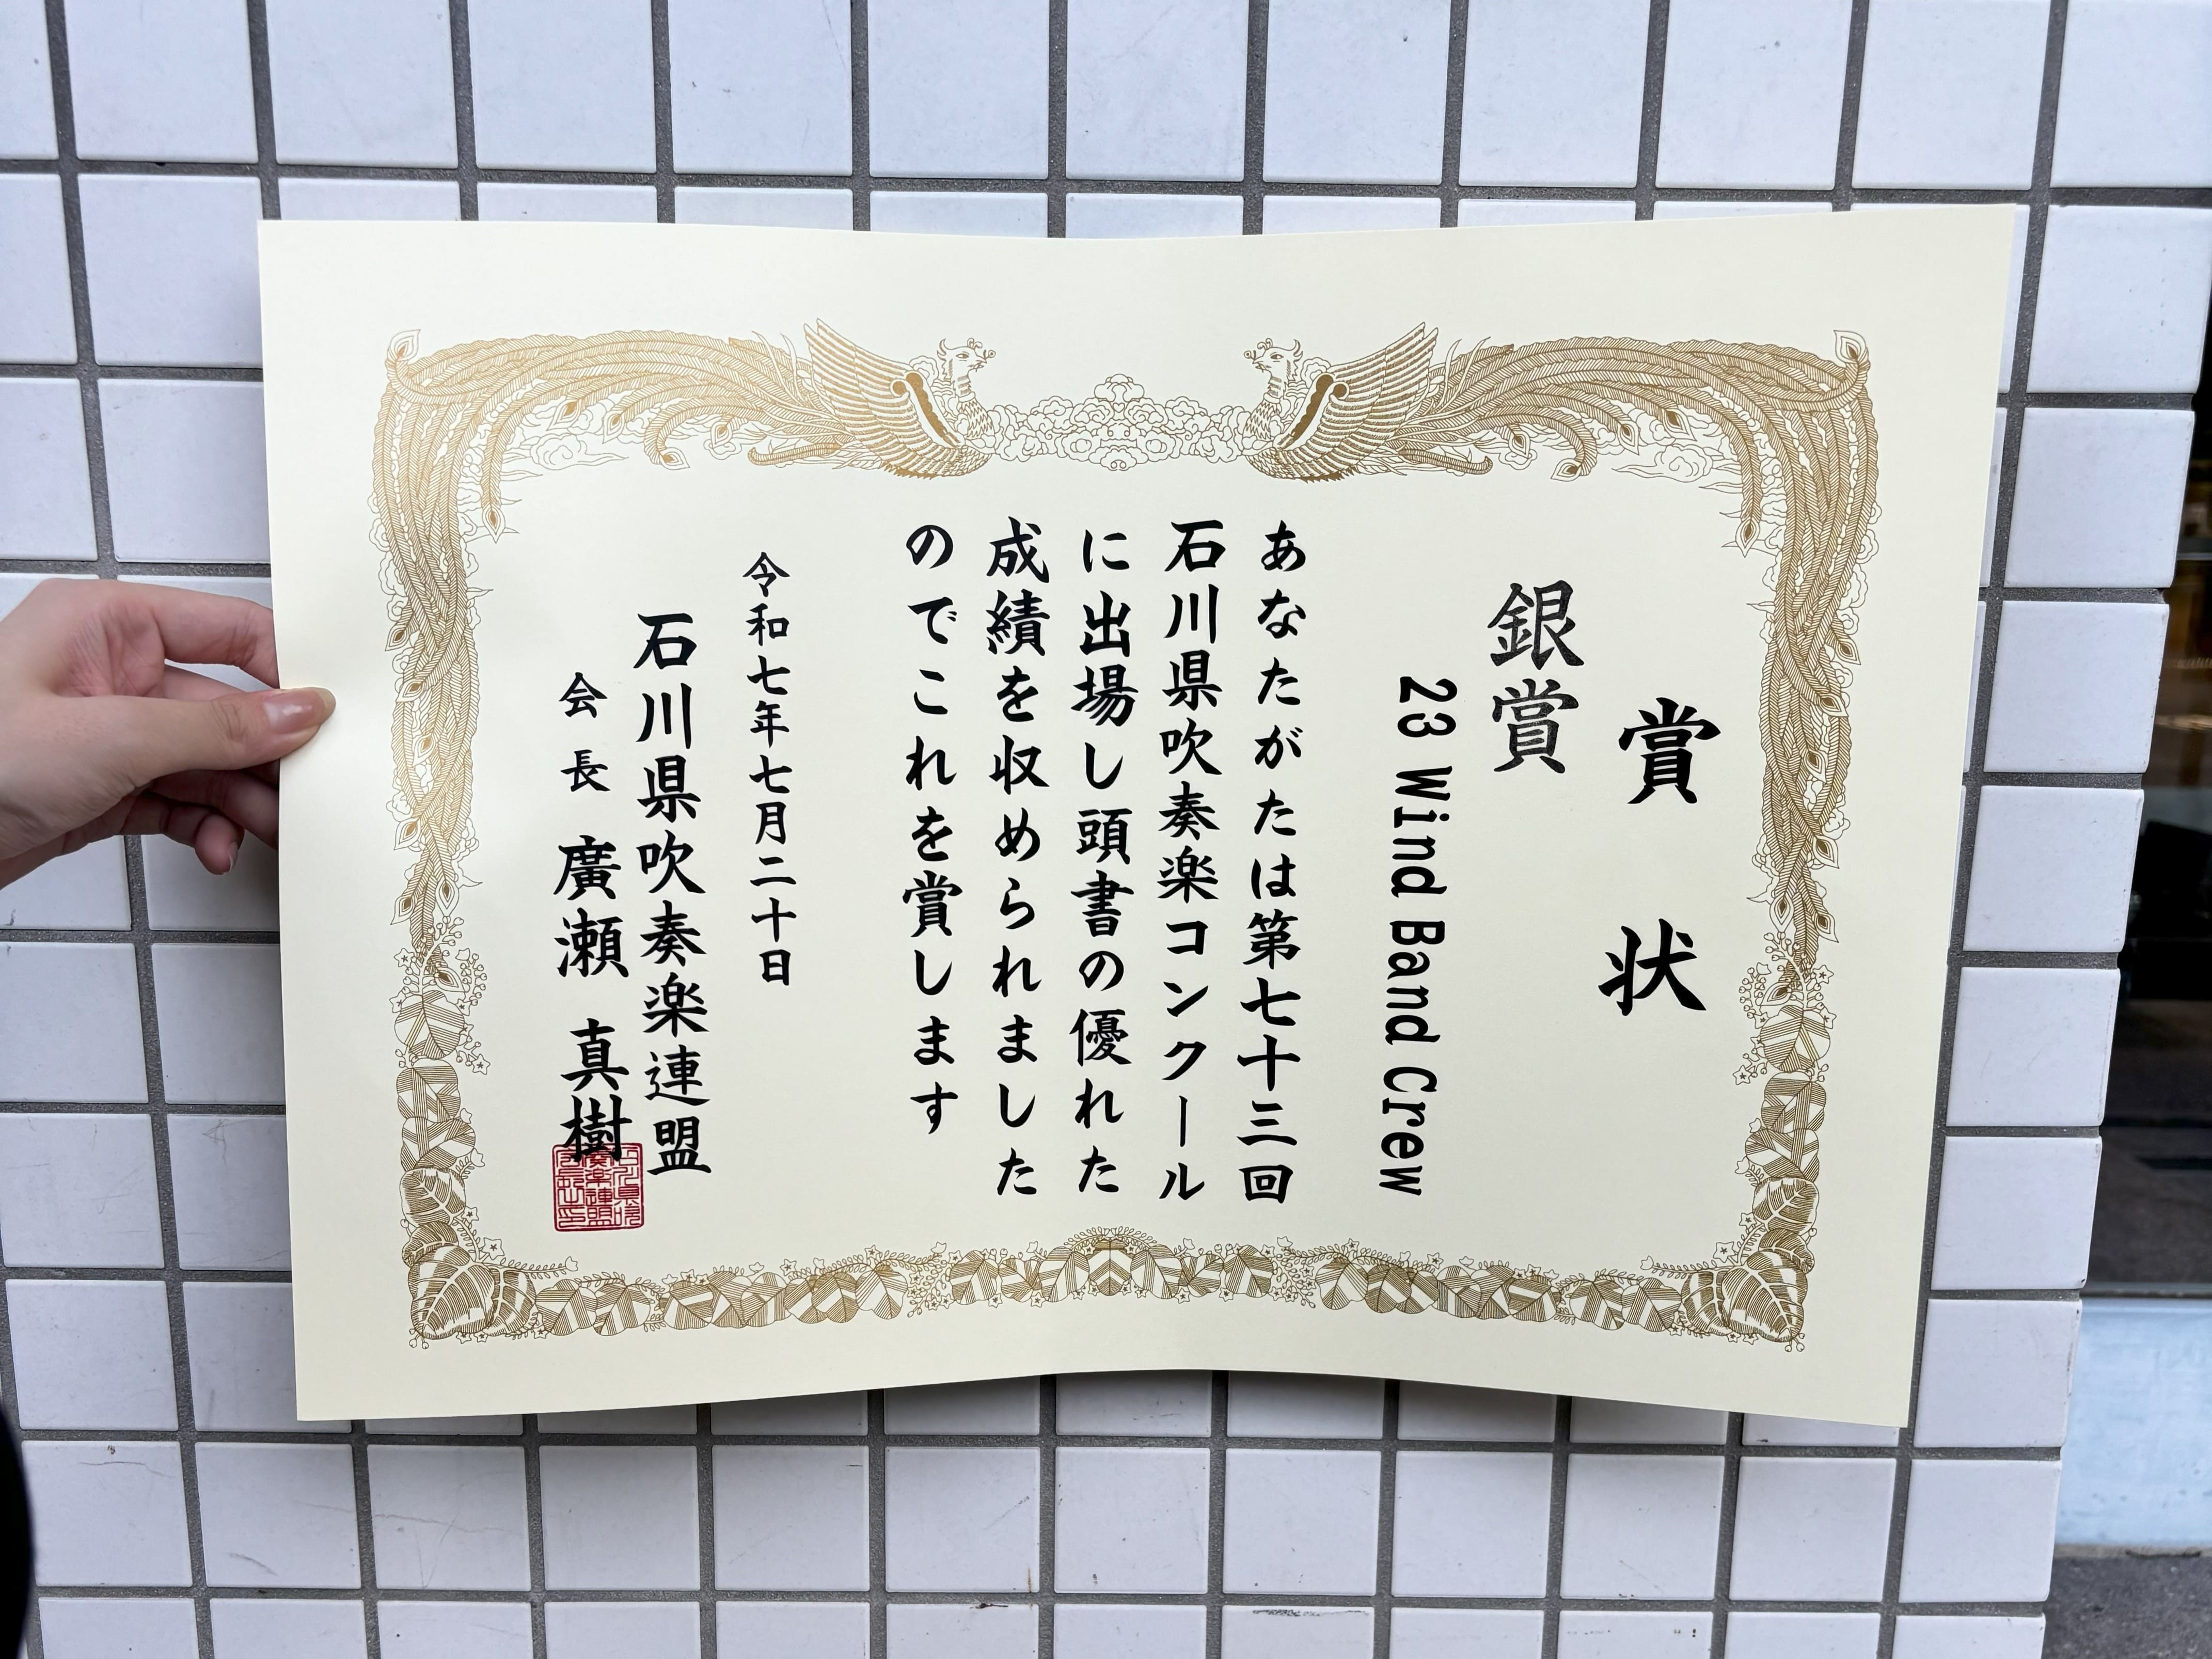 賞状
銀賞
23 Wind Band Crew
あなたがたは第七十三回
石川県吹奏楽コンクール
に出場し頭書の優れた
成績を収められました
のでこれを賞します
令和七年七月二十日
石川県吹奏楽連盟
会長 廣瀬 真樹